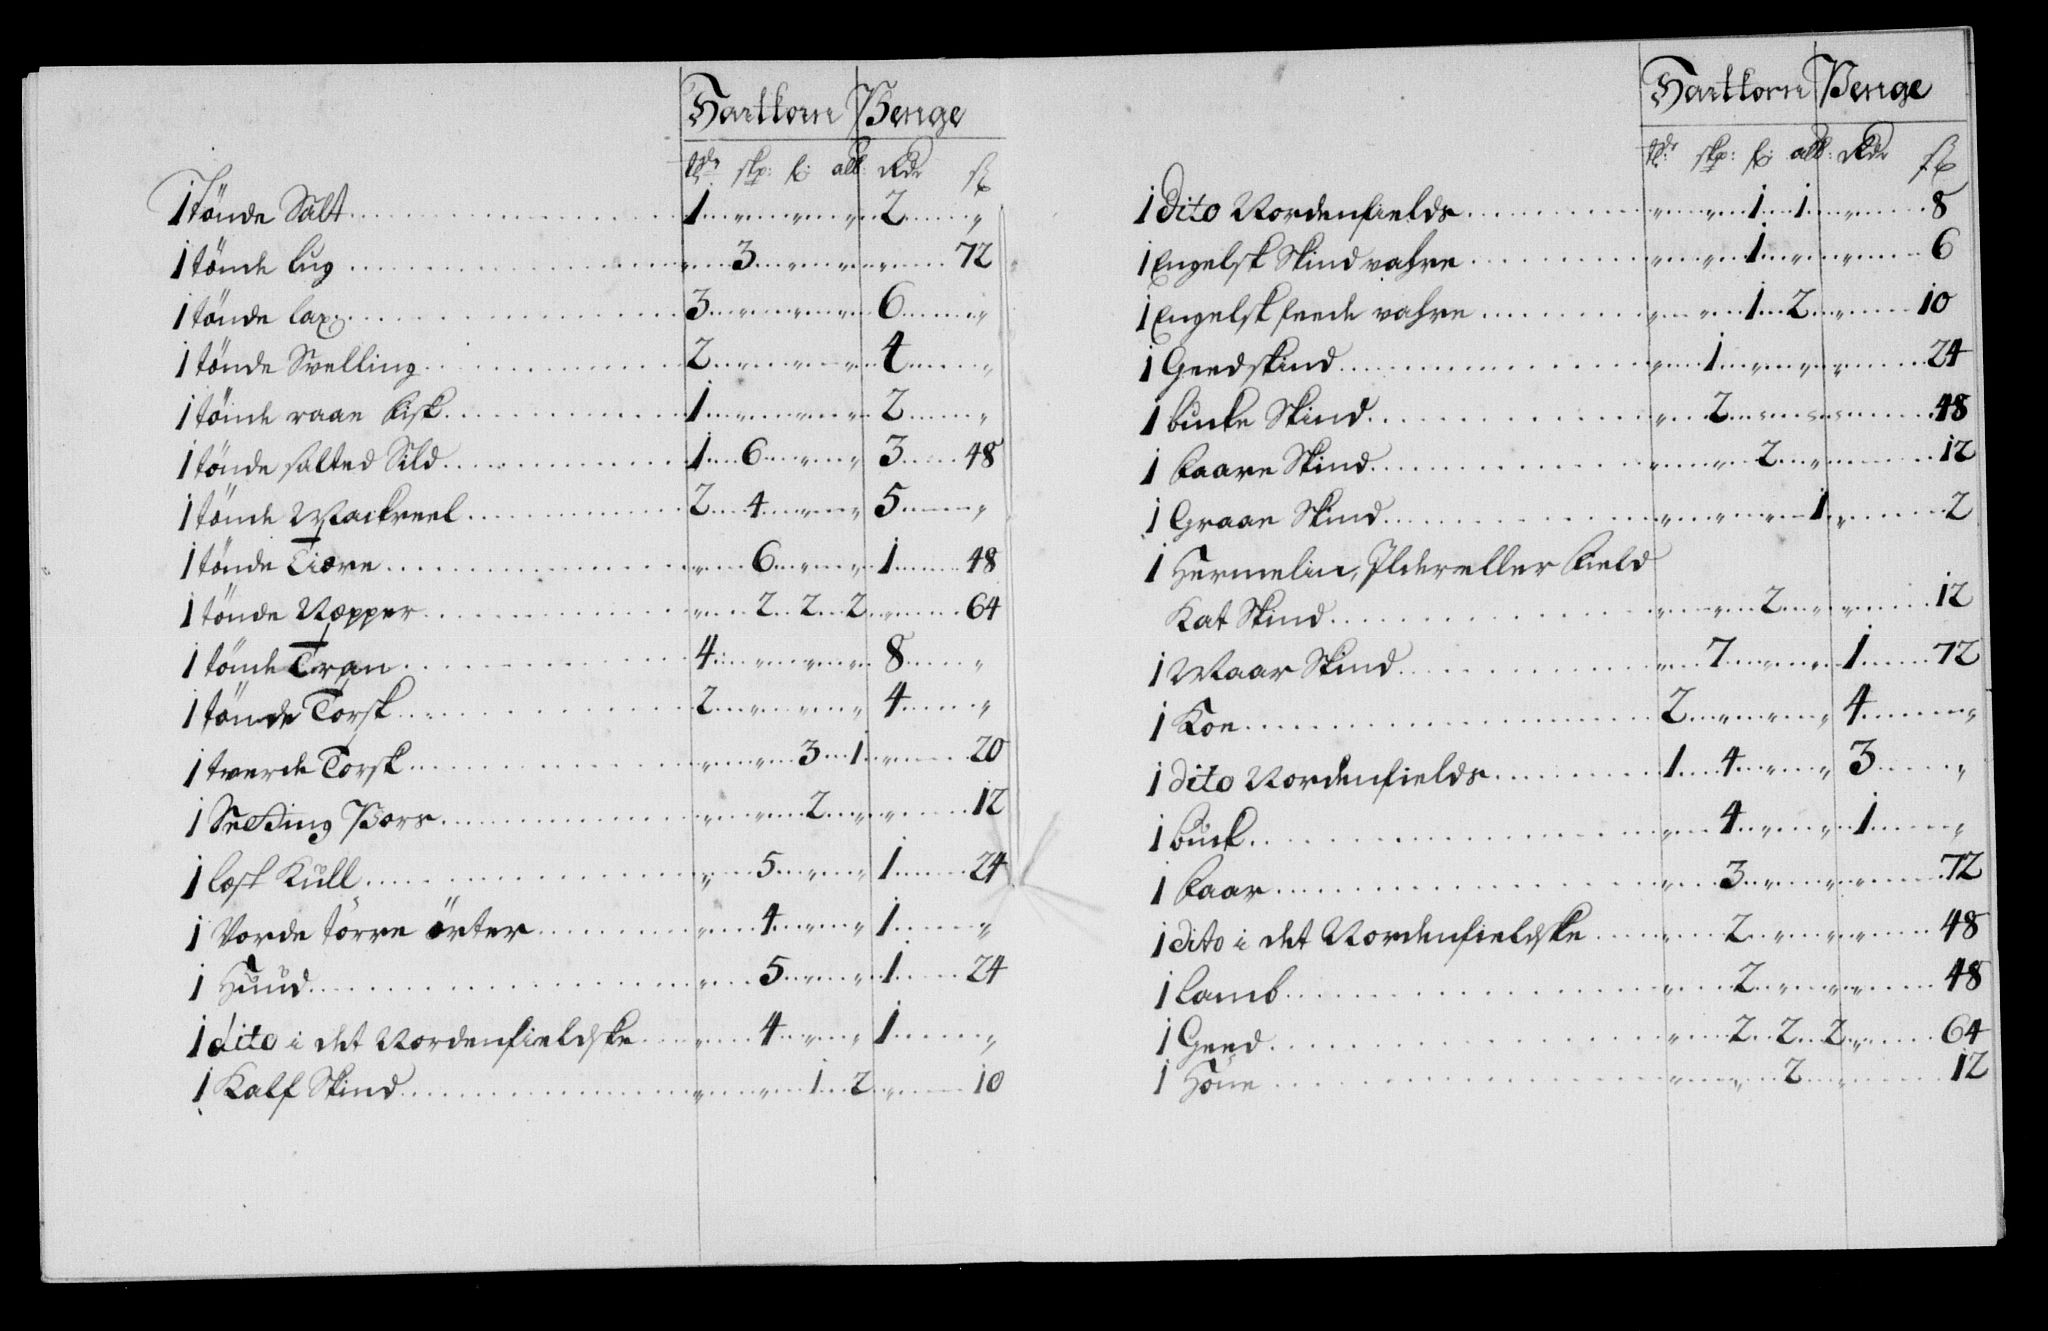 Hartkorn Penge
tdr skp: fr: alb: Rdr ß
1 tönde Salt 1 „ „ „ 2 „
1 tönde lug „ 3 „ „ „ 72
1 tönde lax 3 „ „ „ 6 „
1 tönde Svelling 2 „ „ „ 4 „
1 tönde raae Fisk 1 „ „ „ 2 „
1 tönde salted Sild 1 6 „ „ 3 48
1 tönde Mackreel 2 4 „ „ 5 „
1 tönde Tiære „ 6 „ „ 1 48
1 tönde Næpper „ 2 2 2 „ 64
1 tönde Tran 4 „ „ „ 8 „
1 tönde Torsk 2 „ „ „ 4 „
1 tverde Torsk „ „ 3 1 „ 20
1 Setting Pors „ „ 2 „ „ 12
1 læst Kull „ 5 „ „ 1 24
1 Vorde törre örter „ 4 „ „ 1 „
1 Huud „ 5 „ „ 1 24
1 dito i det Nordenfieldske „ 4 „ „ 1 „
1 Kalf Skind „ „ 1 2 „ 10
Hartkorn Penge
tdr skp: fr: alb: Rdr ß
1 dito Nordenfields „ „ 1 1 „ 8
1 Engelsk Skind vahre „ „ 1 „ „ 6
1 Engelsk feede vahre „ „ 1 2 „ 10
1 Geedskind „ 1 „ „ „ 24
1 bucke Skind „ 2 „ „ „ 48
1 faare Skind „ „ 2 „ „ 12
1 Graae Skind „ „ „ 1 „ 2
1 Hermelin, Ilder eller Field
Kat Skind „ „ 2 „ „ 12
1 Maar Skind „ 7 „ „ 1 72
1 Koe 2 „ „ „ 4 „
1 dito Nordenfields 1 4 „ „ 3 „
1 buck „ 4 „ „ 1 „
1 faar „ 3 „ „ „ 72
1 dito i det Nordenfieldske „ 2 „ „ „ 48
1 lamb „ 2 „ „ „ 48
1 Geed „ 2 2 2 „ 64
1 Höne „ „ 2 „ „ 12